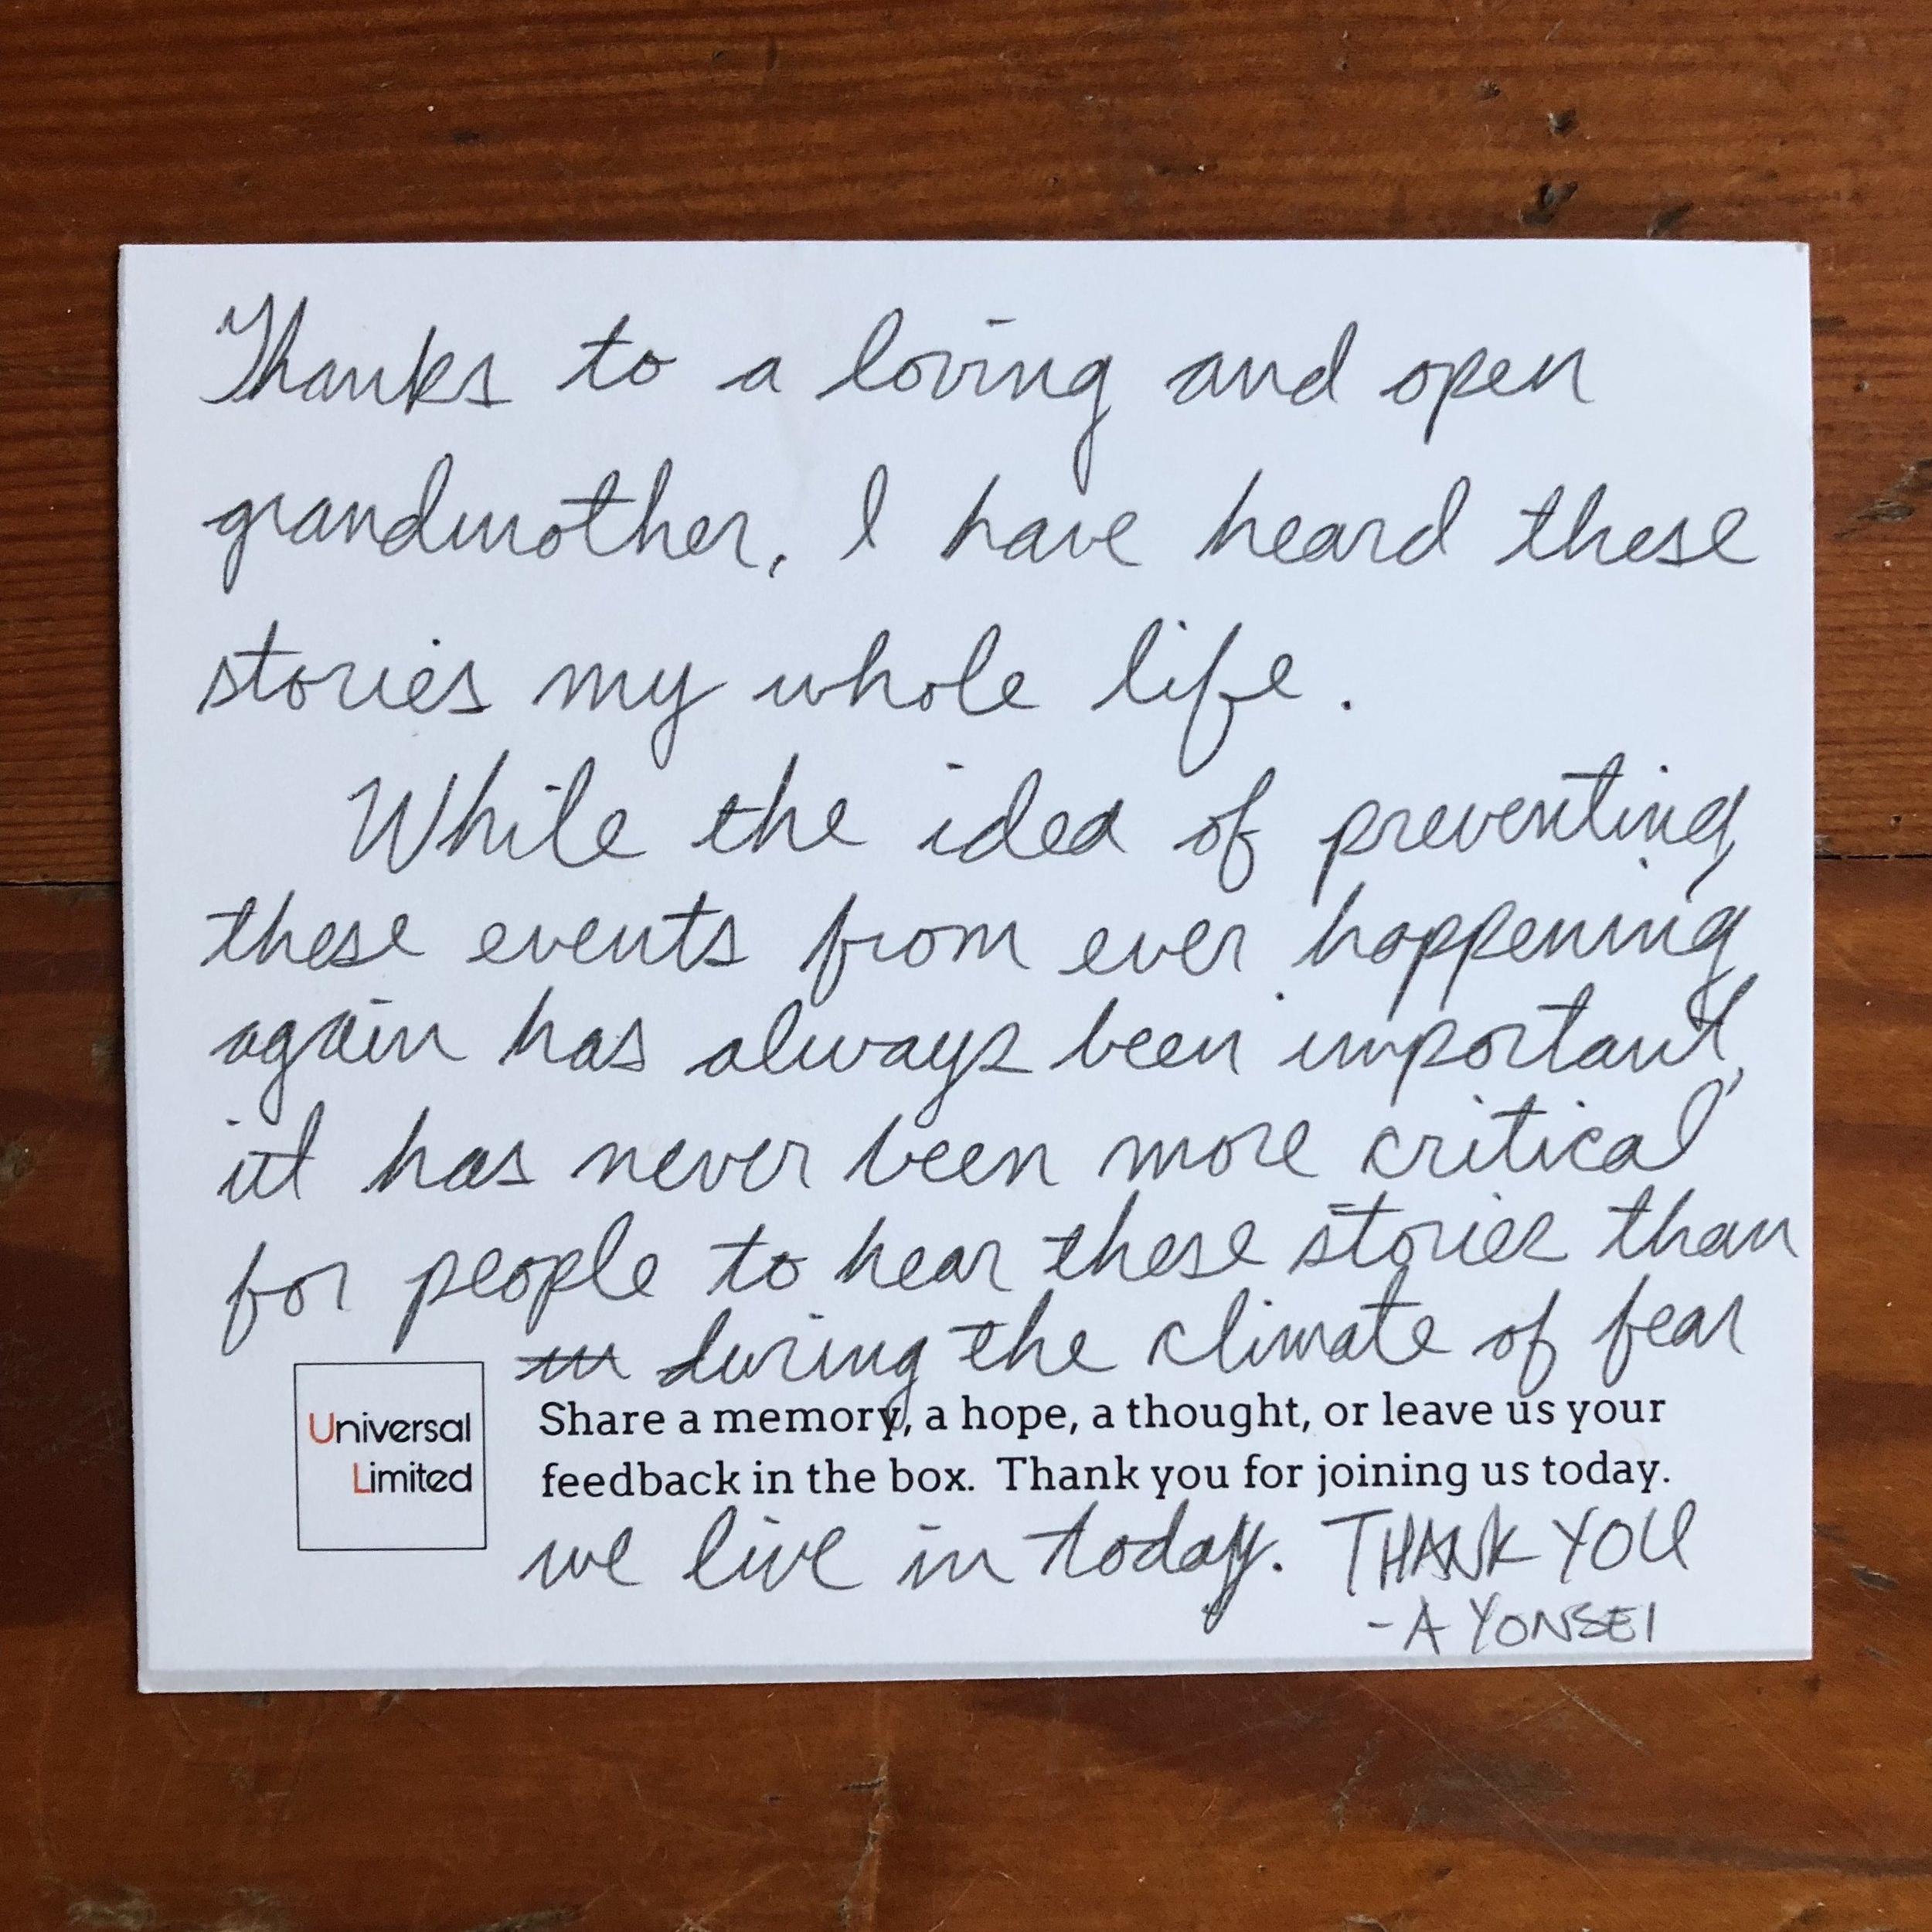 Thanks to a loving and open
grandmother, I have heard these
stories my whole life.
While the idea of preventing
these events from ever happening
again has always been important,
it has never been more critical
for people to hear these stories than
in during the climate of fear
Universal
Limited
Share a memory, a hope, a thought, or leave us your
feedback in the box. Thank you for joining us today.
we live in today. THANK YOU
- A YONSEI